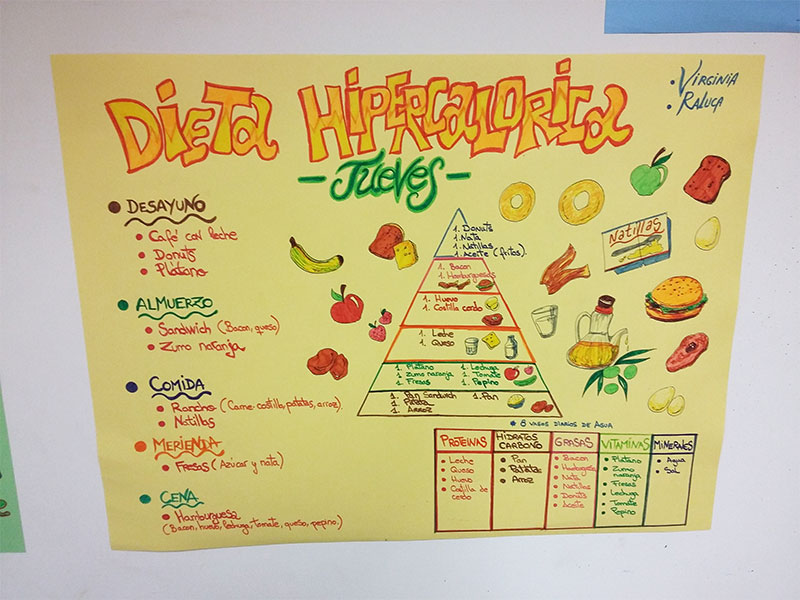 DIETA HIPERCALORICA
- JUEVES -
• VIRGINIA
• RALUCA
• DESAYUNO
• Café con leche
• Donuts
• Plátano
• ALMUERZO
• Sandwich (Bacon, queso)
• Zumo naranja
• COMIDA
• Rancho (Carne: costilla, patatas, arroz)
• Natillas
• MERIENDA
• Fresas (Azúcar y nata)
• CENA
• Hamburguesa
(Bacon, huevo, lechuga, tomate, queso, pepino)
1. Donuts
1. Nata
1. Natillas
1. Aceite (fritos)
1. Bacon
1. Hamburguesas
1. Huevo
1. Costilla cerdo
1. Leche
1. Queso
1. Platano
1. Zumo naranja
1. Fresas
1. Lechuga
1. Tomate
1. Pepino
1. Pan Sandwich
1. Patata
1. Arroz
1. Pan
Natillas
* 8 VASOS DIARIOS DE AGUA
PROTEINAS
• Leche
• Queso
• Huevo
• Costilla de
cerdo
HIDRATOS
CARBONO
• Pan
• Patatas
• Arroz
GRASAS
• Bacon
• Hamburguesa
• Nata
• Natillas
• Donuts
• Aceite
VITAMINAS
• Platano
• Zumo
naranja
• Fresas
• Lechuga
• Tomate
• Pepino
MINERALES
• Agua
• Sal